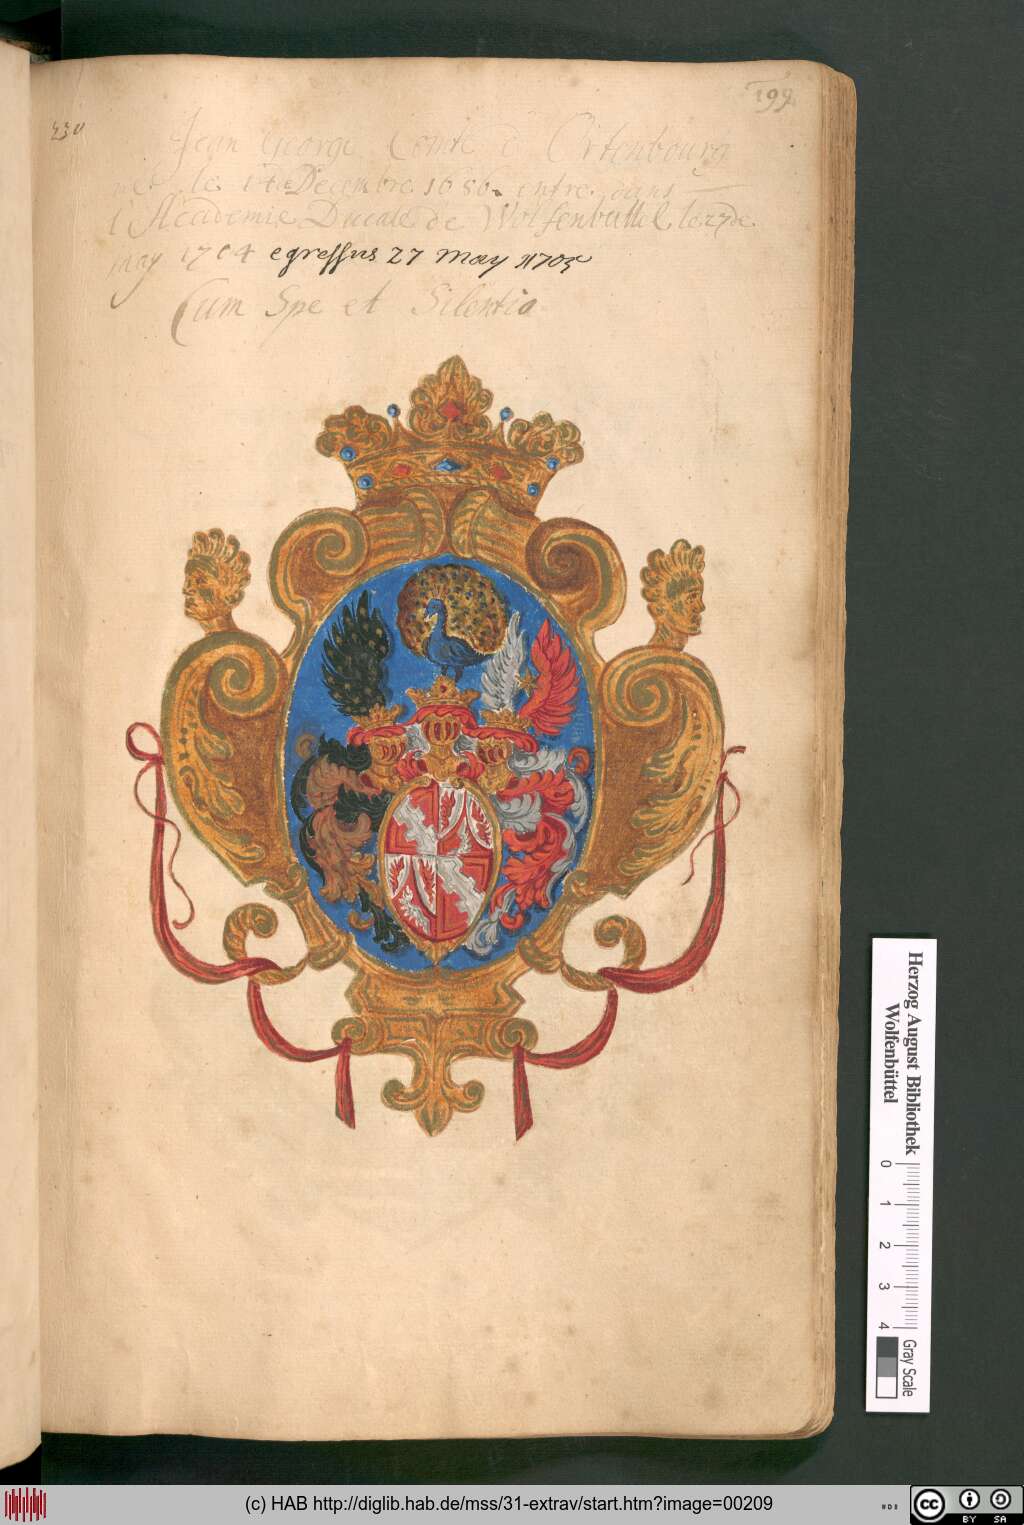 199
230
Jean George Comte d'Ortenbourg
né le 14 Decembre 1686. entre dans
l'Academie Ducale de Wolfenbuttel le 27 de
may 1704 egressus 27 may 1705
Cum Spe et Silentio
Herzog August Bibliothek
Wolfenbüttel
0 1 2 3 4
Gray Scale
(c) HAB http://diglib.hab.de/mss/31-extrav/start.htm?image=00209
cc BY SA